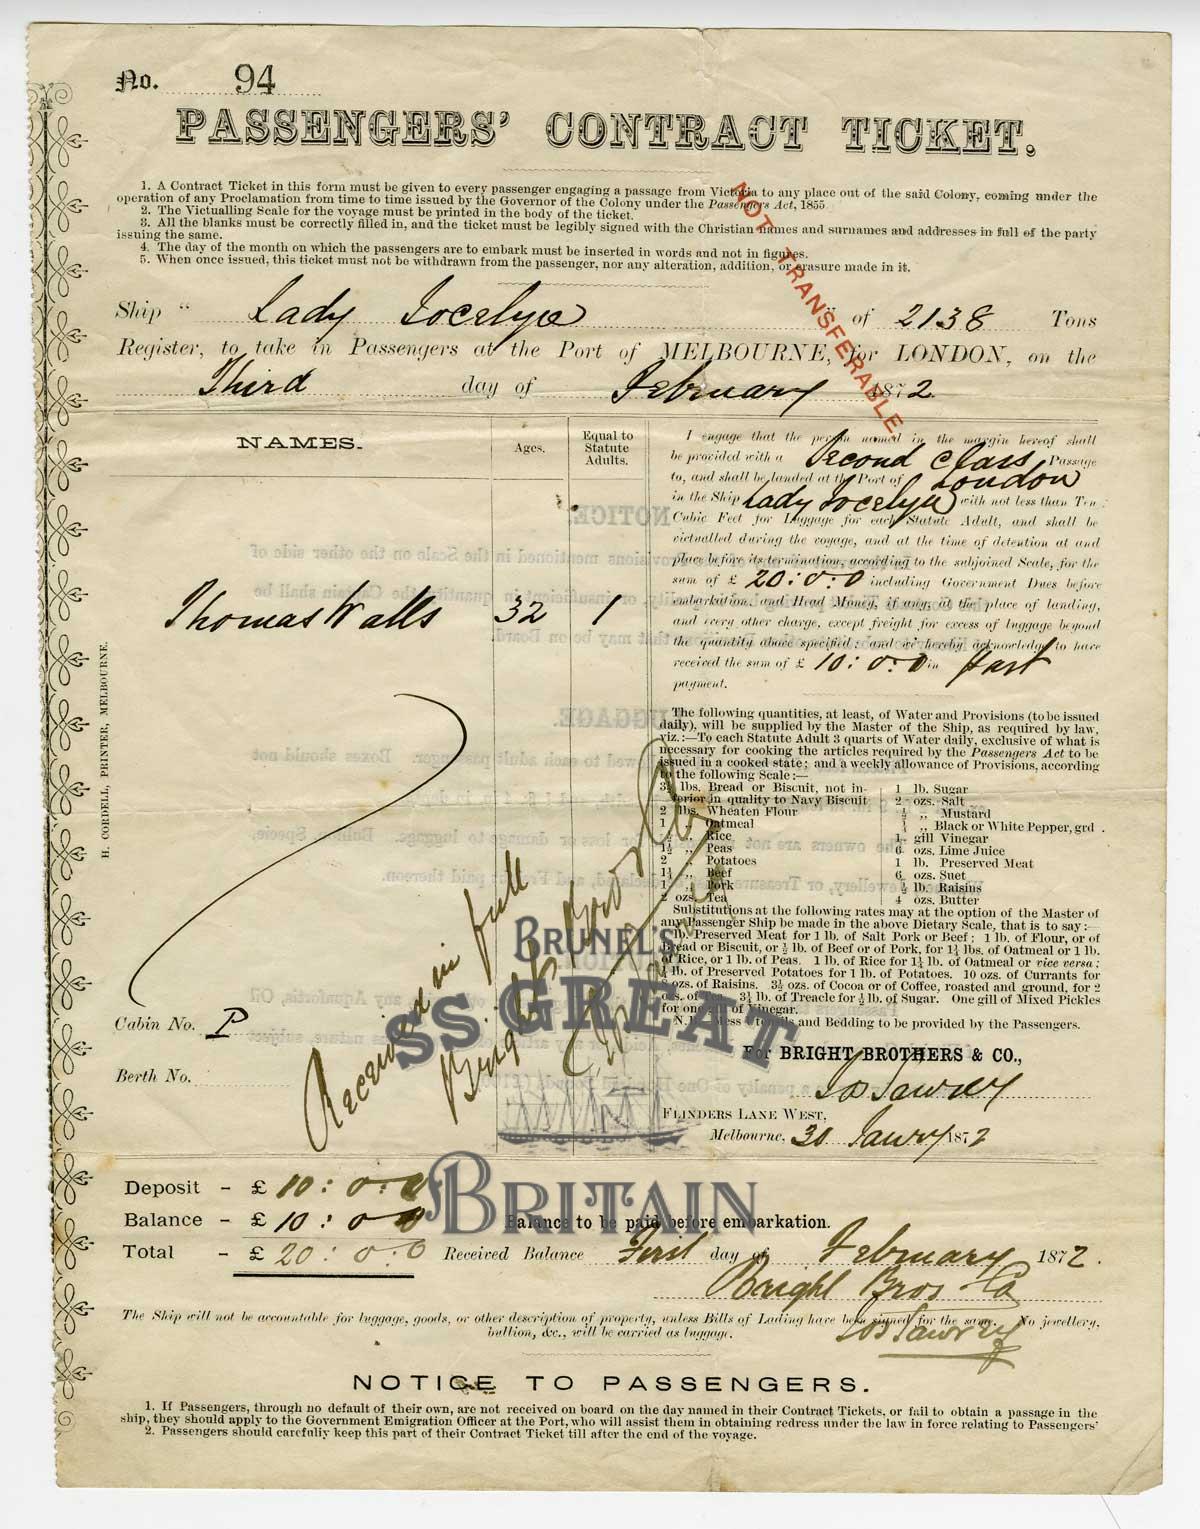 No. 94
PASSENGERS' CONTRACT TICKET.
1. A Contract Ticket in this form must be given to every passenger engaging a passage from Victoria to any place out of the said Colony, coming under the
operation of any Proclamation from time to time issued by the Governor of the Colony under the Passengers Act, 1855
2. The Victualling Scale for the voyage must be printed in the body of the ticket.
3. All the blanks must be correctly filled in, and the ticket must be legibly signed with the Christian names and surnames and addresses in full of the party
issuing the same.
4. The day of the month on which the passengers are to embark must be inserted in words and not in figures.
5. When once issued, this ticket must not be withdrawn from the passenger, nor any alteration, addition, or erasure made in it.
NOT TRANSFERABLE
Ship " Lady Jocelyn of 2138 Tons
Register, to take in Passengers at the Port of MELBOURNE, for LONDON, on the
Third day of February 1872.
NAMES.
Ages.
Equal to
Statute
Adults.
Thomas Walls 32 1
I engage that the person named in the margin hereof shall
be provided with a Second Class Passage
to, and shall be landed at the Port of London
in the Ship Lady Jocelyn with not less than Ten
Cubic Feet for Luggage for each Statute Adult, and shall be
victualled during the voyage, and at the time of detention at and
place before its termination, according to the subjoined Scale, for the
sum of £ 20:0:0 including Government Dues before
embarkation, and Head Money, if any, at the place of landing,
and every other charge, except freight for excess of luggage beyond
the quantity above specified; and we hereby acknowledge to have
received the sum of £ 10:0:0 in part
payment.
The following quantities, at least, of Water and Provisions (to be issued
daily), will be supplied by the Master of the Ship, as required by law,
viz.:—To each Statute Adult 3 quarts of Water daily, exclusive of what is
necessary for cooking the articles required by the Passengers Act to be
issued in a cooked state; and a weekly allowance of Provisions, according
to the following Scale:—
3½ lbs. Bread or Biscuit, not in-
ferior in quality to Navy Biscuit
2 lbs. Wheaten Flour
1 " Oatmeal
Rice
1½ " Peas
2 " Potatoes
1¼ " Beef
1 " Pork
2 ozs. Tea
1 lb. Sugar
2 ozs. Salt
½ " Mustard
¼ " Black or White Pepper, grd.
1 gill Vinegar
6 ozs. Lime Juice
1 lb. Preserved Meat
6 ozs. Suet
½ lb. Raisins
4 ozs. Butter
Substitutions at the following rates may at the option of the Master of
any Passenger Ship be made in the above Dietary Scale, that is to say:—
lb. Preserved Meat for 1 lb. of Salt Pork or Beef; 1 lb. of Flour, or of
Bread or Biscuit, or ½ lb. of Beef or of Pork, for 1¼ lbs. of Oatmeal or 1 lb.
of Rice, or 1 lb. of Peas. 1 lb. of Rice for 1¼ lb. of Oatmeal or vice versa;
¼ lb. of Preserved Potatoes for 1 lb. of Potatoes. 10 ozs. of Currants for
8 ozs. of Raisins. 3½ ozs. of Cocoa or of Coffee, roasted and ground, for 2
ozs. of Tea. 3¾ lb. of Treacle for ½ lb. of Sugar. One gill of Mixed Pickles
for one gill of Vinegar.
N.B. Mess Utensils and Bedding to be provided by the Passengers.
Received in full
Bright Bros & Co
BRUNEL'S
SS GREAT
BRITAIN
Cabin No. P
Berth No.
For BRIGHT BROTHERS & CO.,
Jos Tawrey
FLINDERS LANE WEST,
Melbourne, 30 Janry 1872
Deposit - £ 10:0:0
Balance - £ 10:0:0 Balance to be paid before embarkation.
Total - £ 20:0:0 Received Balance First day of February 1872.
Bright Bros & Co
Jos Tawrey
The Ship will not be accountable for luggage, goods, or other description of property, unless Bills of Lading have been signed for the same. No jewellery,
bullion, &c., will be carried as luggage.
NOTICE TO PASSENGERS.
1. If Passengers, through no default of their own, are not received on board on the day named in their Contract Tickets, or fail to obtain a passage in the
ship, they should apply to the Government Emigration Officer at the Port, who will assist them in obtaining redress under the law in force relating to Passengers'
2. Passengers should carefully keep this part of their Contract Ticket till after the end of the voyage.
H. CORDELL, PRINTER, MELBOURNE.